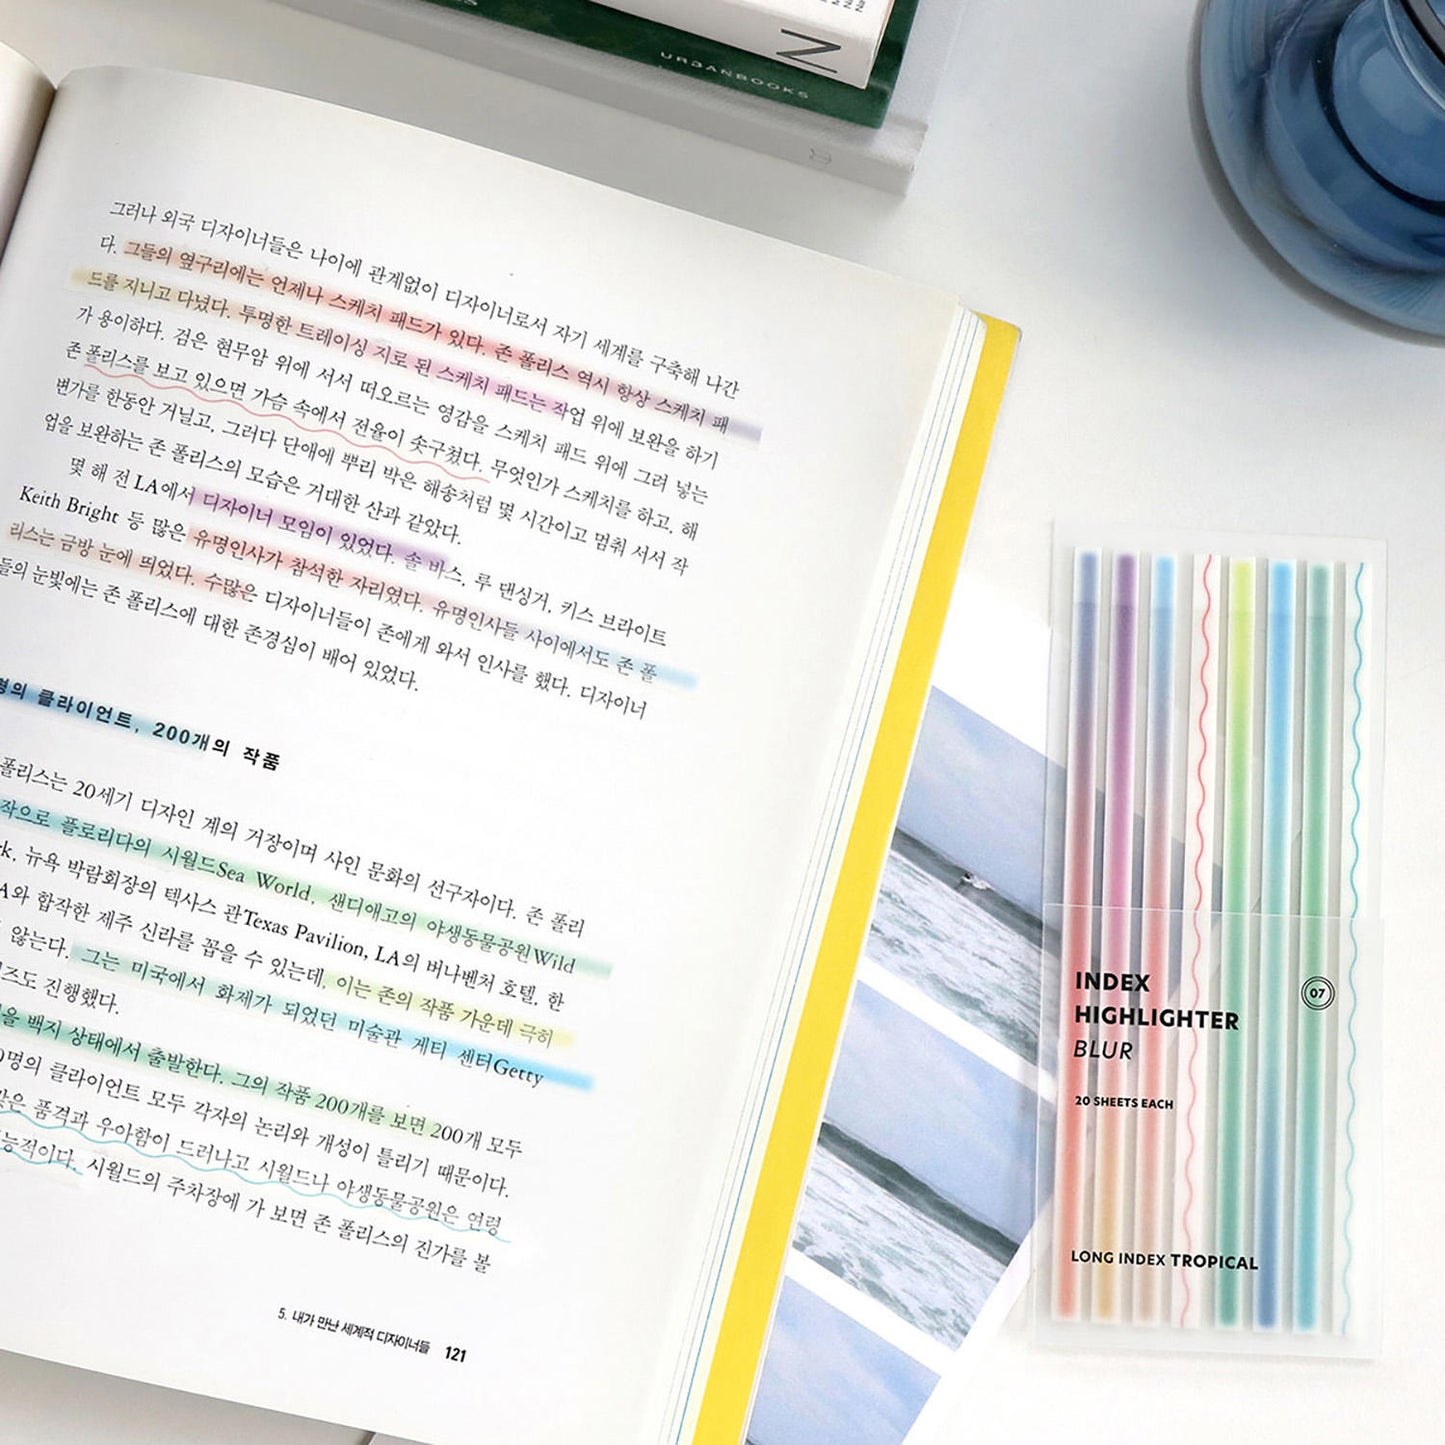 URBANBOOKS
그러나 외국 디자이너들은 나이에 관계없이 디자이너로서 자기 세계를 구축해 나간
다. 그들의 옆구리에는 언제나 스케치 패드가 있다. 존 폴리스 역시 항상 스케치 패
드를 지니고 다녔다. 투명한 트레이싱 지로 된 스케치 패드는 작업 위에 보완을 하기
가 용이하다. 검은 현무암 위에 서서 떠오르는 영감을 스케치 패드 위에 그려 넣는
존 폴리스를 보고 있으면 가슴 속에서 전율이 솟구쳤다. 무엇인가 스케치를 하고, 해
변가를 한동안 거닐고, 그러다 단애에 뿌리 박은 해송처럼 몇 시간이고 멈춰 서서 작
업을 보완하는 존 폴리스의 모습은 거대한 산과 같았다.
몇 해 전 LA에서 디자이너 모임이 있었다. 솔 바스, 루 댄싱거, 키스 브라이트
Keith Bright 등 많은 유명인사가 참석한 자리였다. 유명인사들 사이에서도 존 폴
리스는 금방 눈에 띄었다. 수많은 디자이너들이 존에게 와서 인사를 했다. 디자이너
들의 눈빛에는 존 폴리스에 대한 존경심이 배어 있었다.
명의 클라이언트, 200개의 작품
폴리스는 20세기 디자인 계의 거장이며 사인 문화의 선구자이다. 존 폴리
작으로 플로리다의 시월드Sea World, 샌디애고의 야생동물공원Wild
rk, 뉴욕 박람회장의 텍사스 관Texas Pavilion, LA의 버나벤처 호텔, 한
A와 합작한 제주 신라를 꼽을 수 있는데, 이는 존의 작품 가운데 극히
않는다. 그는 미국에서 화제가 되었던 미술관 게티 센터Getty
즈도 진행했다.
을 백지 상태에서 출발한다. 그의 작품 200개를 보면 200개 모두
0명의 클라이언트 모두 각자의 논리와 개성이 틀리기 때문이다.
은 품격과 우아함이 드러나고 시월드나 야생동물공원은 연령
능적이다. 시월드의 주차장에 가 보면 존 폴리스의 진가를 볼
5. 내가 만난 세계적 디자이너들 121
INDEX
HIGHLIGHTER
BLUR
07
20 SHEETS EACH
LONG INDEX TROPICAL